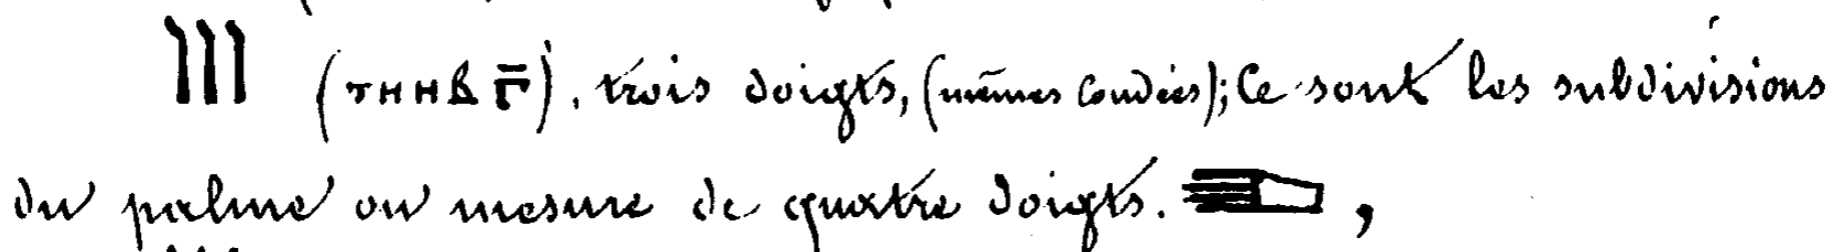 𓂭𓂭𓂭 (ⲧⲏⲏⲃ ⲅ̄). trois doigts, (mêmes Coudées); Ce sont les subdivisions
du palme ou mesure de quatre doigts. 𓂩,